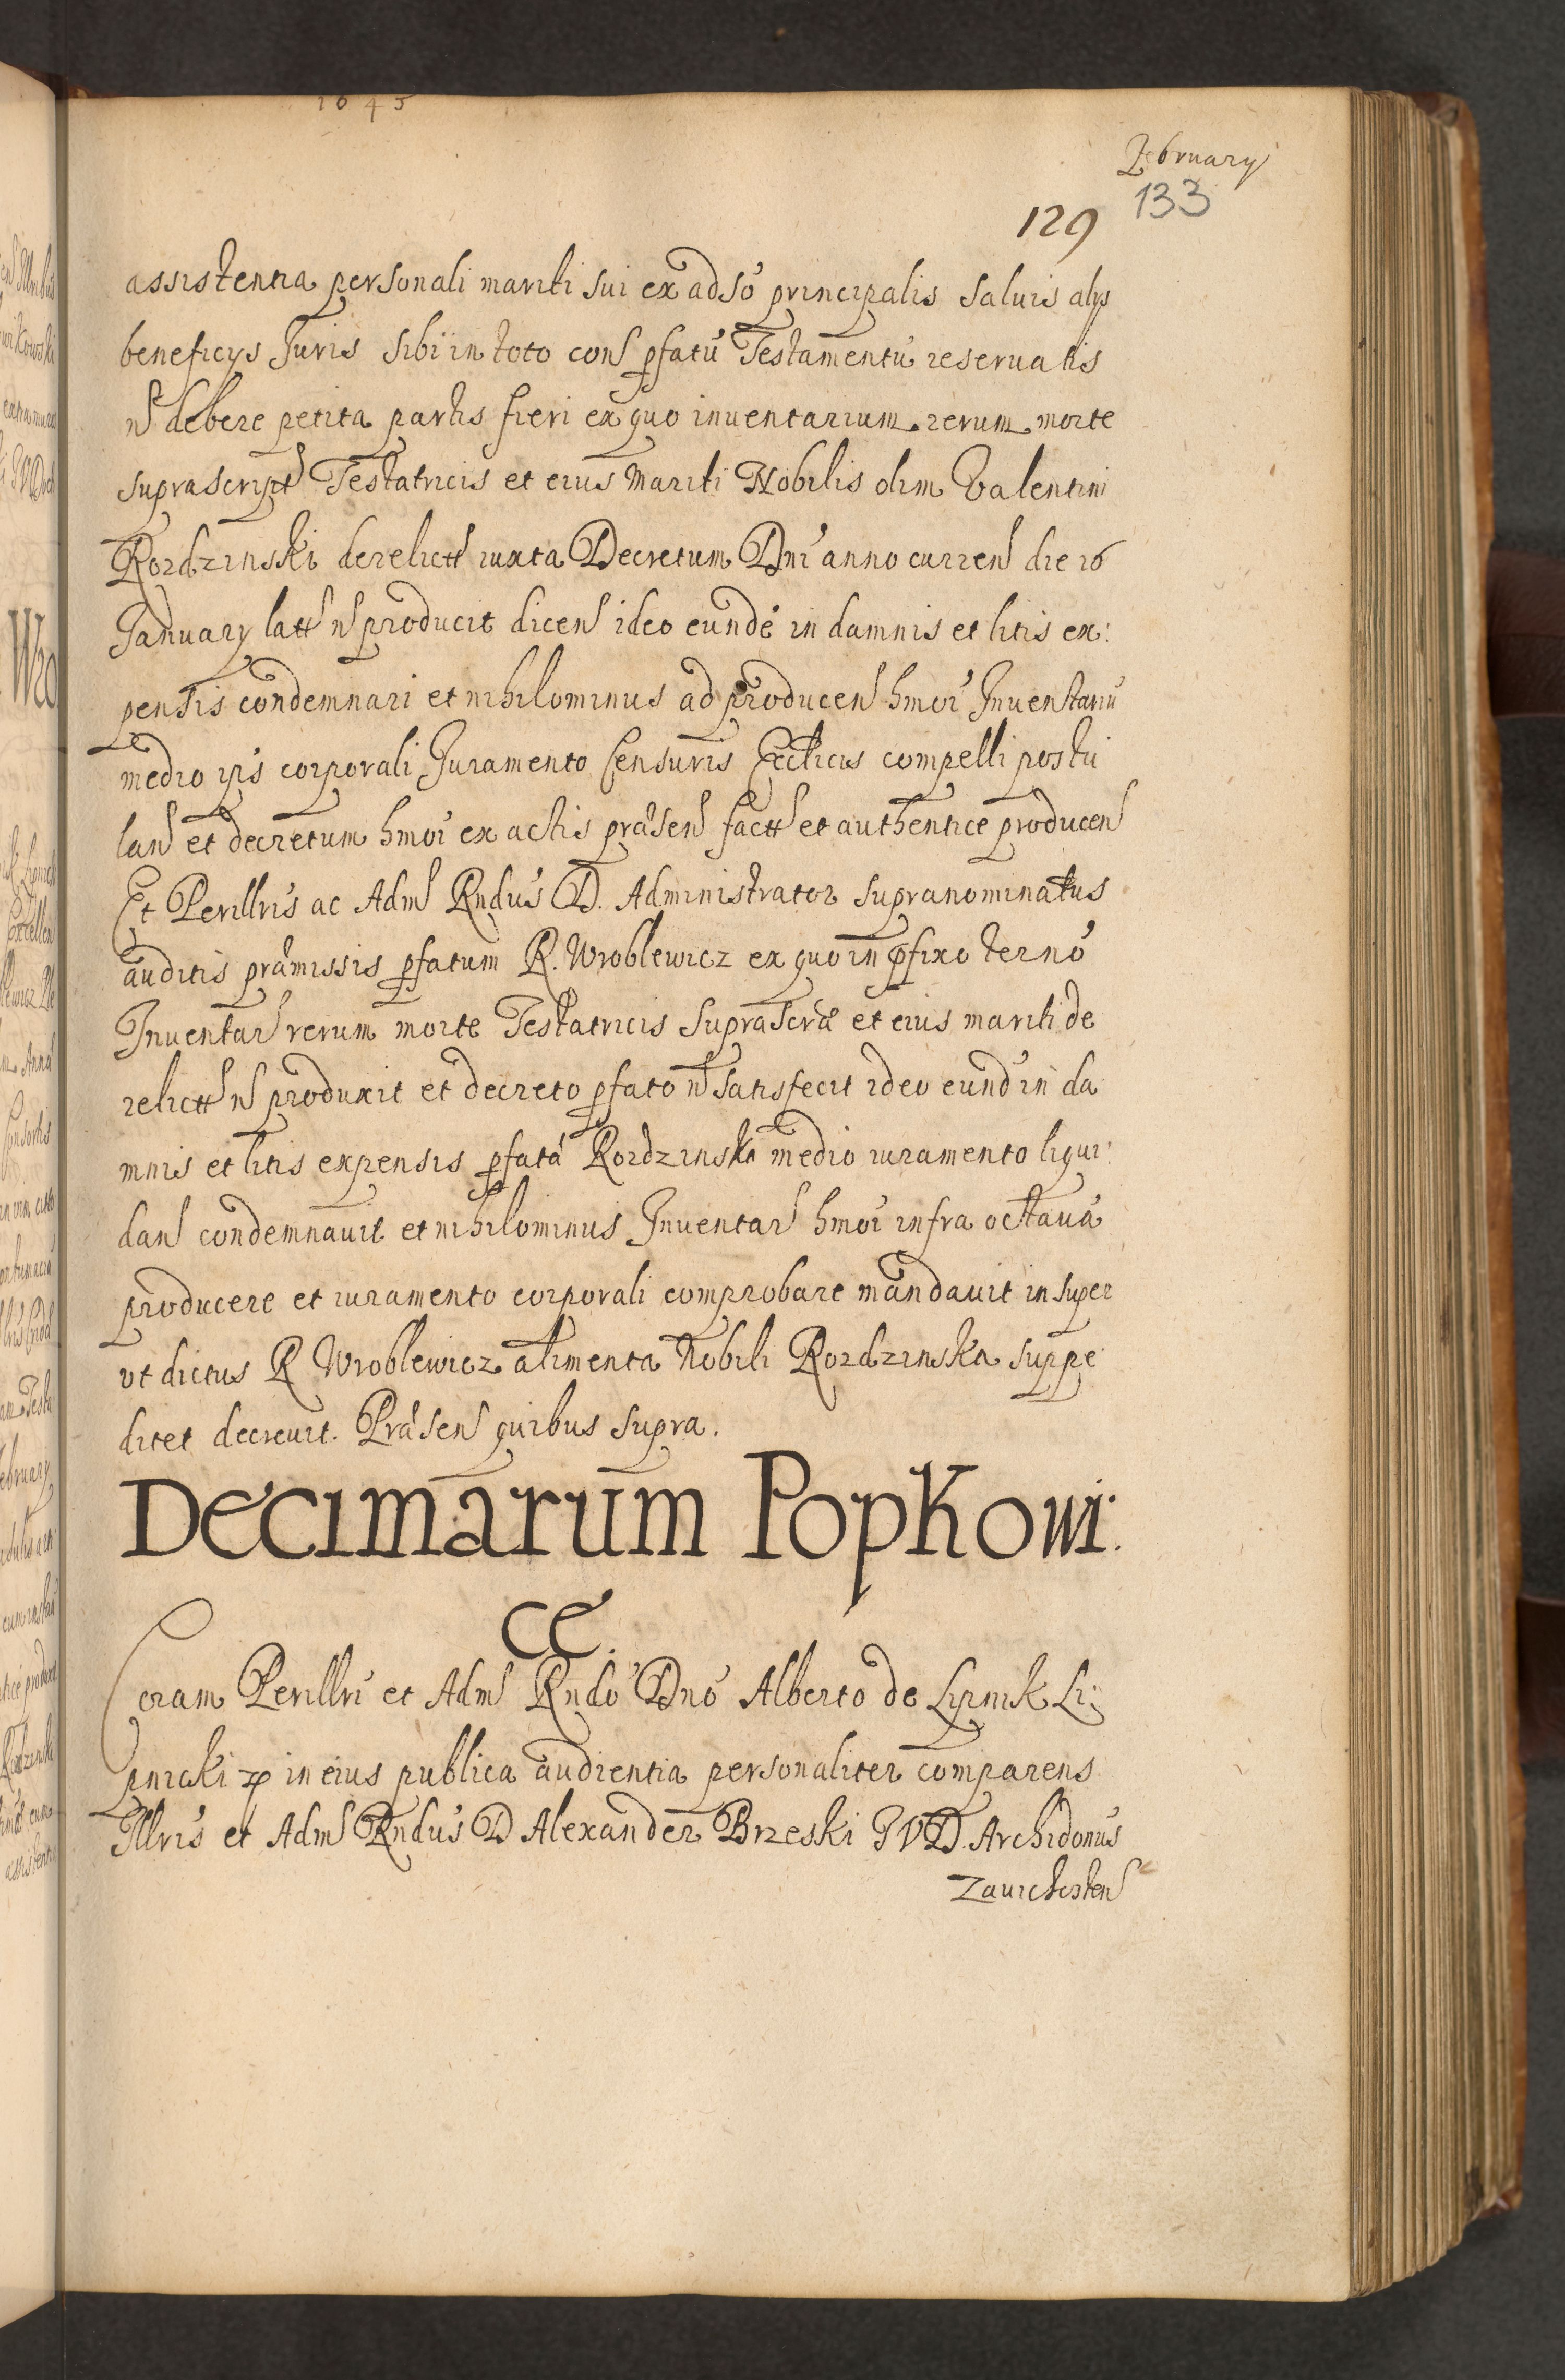 1645
February
133
129
assistentia personali mariti sui ex adso principalis saluis alys
beneficys Juris sibi in toto cons pfatu Testamentu reseruatis
n debere petita partis fieri ex quo inuentarium rerum morte
suprascript Testatricis et eius mariti Nobilis olim Valentini
Rozdzinski derelictt iuxta Decretum Dni anno curren die 16
January latt n producit dicen ideo eunde in damnis et litis ex:
pensis condemnari et nihilominus ad producen hmoi Inuentariu
medio ips corporali Juramento Censuris Ecclicis compelli postu
lan et decretum hmoi ex actis præsen factt et authentice producen
Et Perillris ac Adm Rndus D. Administrator supranominatus
auditis præmissis pfatum R. Wroblewicz ex quo in pfixo termo
Inuentar rerum morte Testatricis suprascræ et eius mariti de
relictt n produxit et decreto pfato n satisfecit ideo eund in da
mnis et litis expensis pfatæ Rozdzinska medio iuramento liqui:
dan condemnauit et nihilominus Inuentar hmoi infra octaua
producere et iuramento corporali comprobare mandauit insuper
vt dictus R Wroblewicz alimenta Nobili Rozdzinska suppe
ditet decreuit. Præsen quibus supra.
Decimarum Popkowi:
ce.
Coram Perillri et Adm Rndo Dno Alberto de Lipnik Li:
pnicki in eius publica audientia personaliter comparens
Illris et Adm Rndus D Alexander Brzeski JVD. Archidonus
Zauichosten